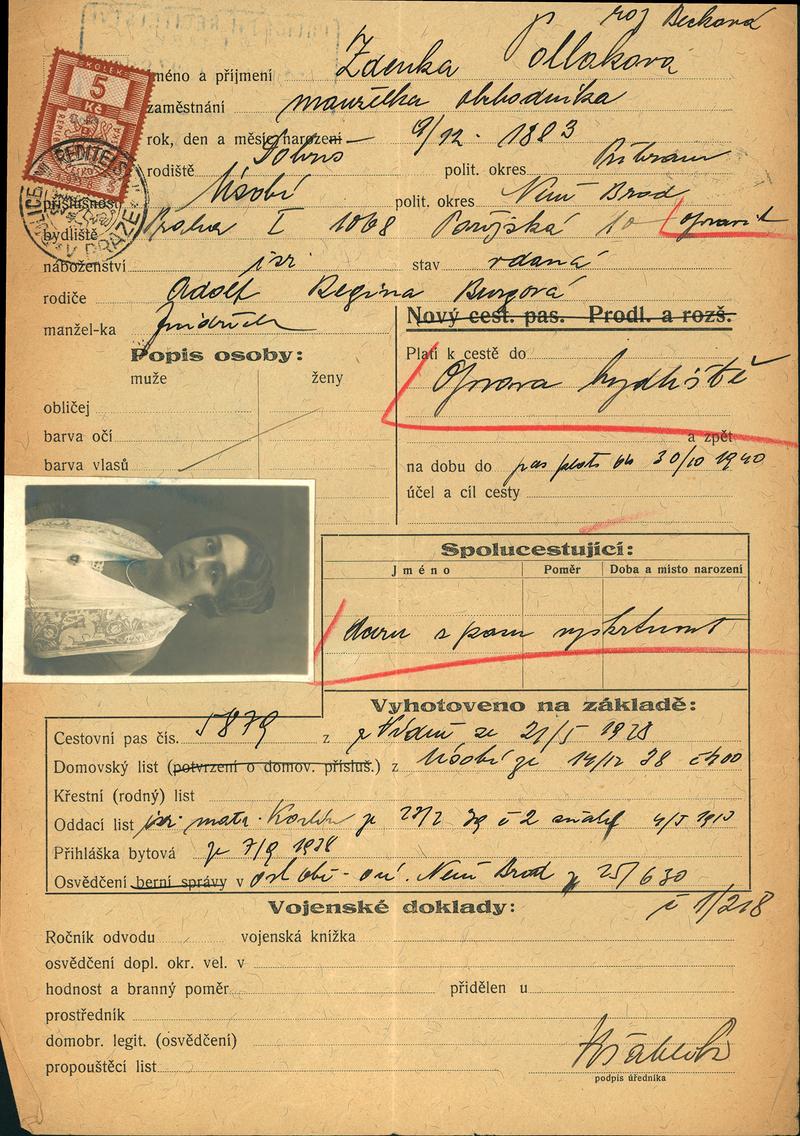 roz Becková
jméno a příjmení Zdenka Pollaková
KOLEK
5
Kč
zaměstnání manželka obchodníka
rok, den a měsíc narození 9/12. 1883
rodiště polit. okres Příbram
příslušnost Úsobí polit. okres Něm Brod
bydliště Praha I 1068 Pařížská 10 opravit
V PRAZE
náboženství izr stav vdaná
rodiče Adolf Regina Burgová
manžel-ka Jindřich
Nový cest. pas. Prodl. a rozš.
Popis osoby:
muže ženy
obličej
barva očí
barva vlasů
Platí k cestě do
Oprava bydliště
a zpět
na dobu do pas platí do 30/10 1940
účel a cíl cesty
Spolucestující:
Jméno Poměr Doba a místo narození
z pasu vyškrtnout
Vyhotoveno na základě:
Cestovní pas čís. 5879 z z Vídně ze 21/5 1928
Domovský list (potvrzení o domov. přísluš.) z Úsobí ze 14/12 38
Křestní (rodný) list
Oddací list izr. matr. Karlín č 2
Přihláška bytová ze 7/9 1928
Osvědčení berní správy v Něm Brod z 25/6 30
č 1/218
Vojenské doklady:
Ročník odvodu vojenská knížka
osvědčení dopl. okr. vel. v
hodnost a branný poměr přidělen u
prostředník
domobr. legit. (osvědčení)
propouštěcí list
podpis úředníka